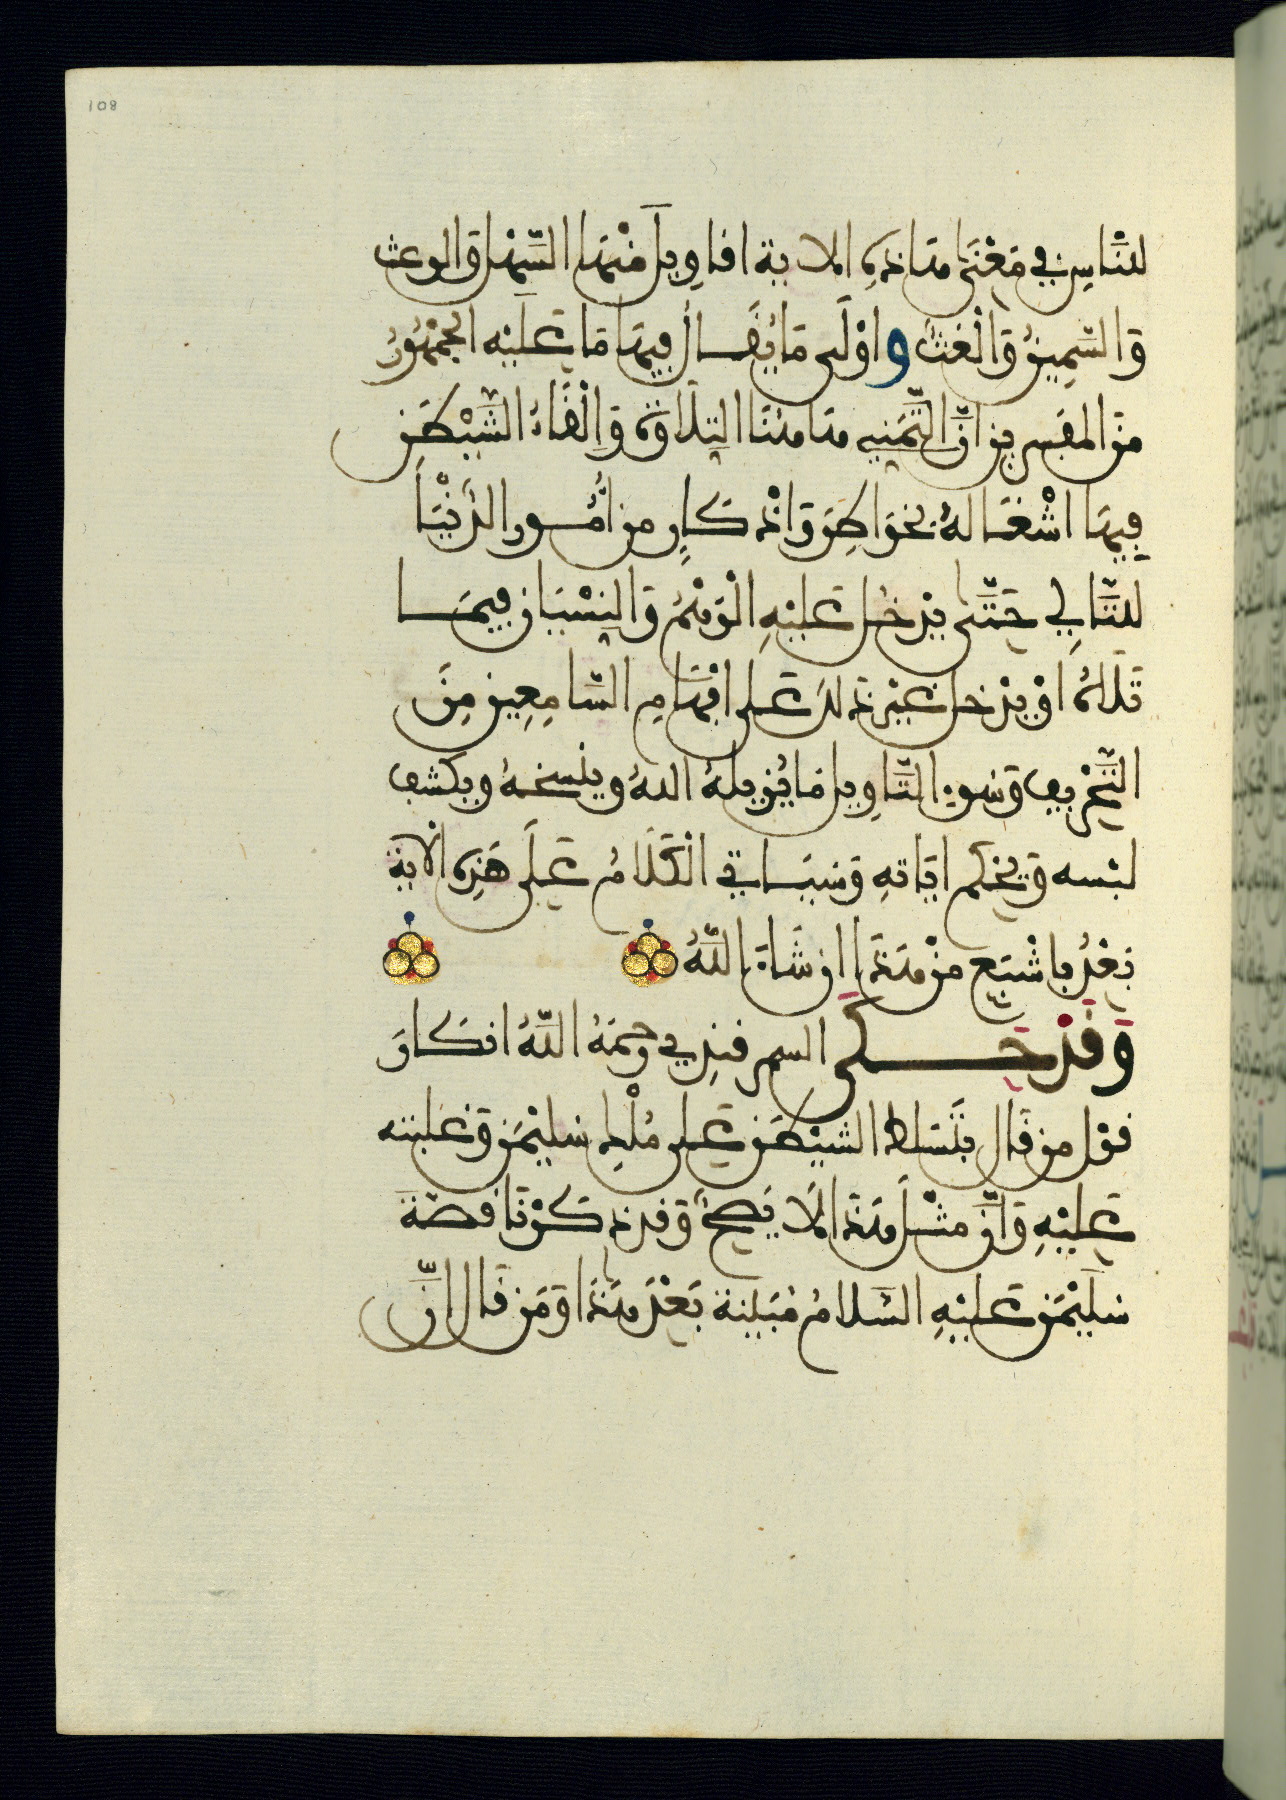 108
للناس في معنى هذه الاية اقاويل منها السهل والوعث
والسمين والغث واولى ما يقال فيها ما عليه الجمهور
من المفسرين ان التمني هاهنا التلاوة والقاء الشيطن
فيها اشغاله بخواطر واذكار من امور الدنيا
للتالي حتى يدخل عليه الوهم والنسيان فيما
تلاه او يدخل غير ذلك على افهام السامعين من
التحريف وسوء التاويل ما يزيله الله وينسخه ويكشف
لبسه ويحكم اياته وسياتي الكلام على هذه الاية
بعد باشبع من هذا ان شاء الله
وقد حكى السمرقندي رحمه الله انكار
قول من قال بتسلط الشيطن على ملك سليمن وغلبته
عليه وان مثل هذا لا يصح وقد ذكرنا قصة
سليمن عليه السلام مبينة بعد هذا ومن قال ان